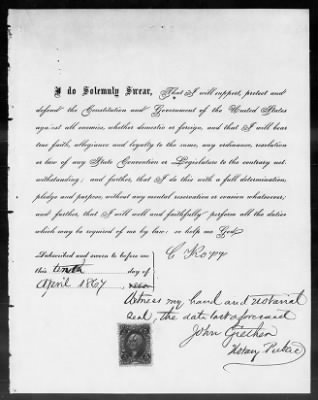 I do Solemnly Swear, That I will support, protect and
defend the Constitution and Government of the United States
against all enemies, whether domestic or foreign, and that I will bear
true faith, allegiance and loyalty to the same, any ordinance, resolution
or law of any State Convention or Legislature to the contrary not-
withstanding; and further, that I do this with a full determination,
pledge and purpose, without any mental reservation or evasion whatsoever;
and further, that I will well and faithfully perform all the duties
which may be required of me by law: so help me God.
C Kopp
Subscribed and sworn to before me
this tenth day of
April 1867
Witness my hand and notarial
seal, the date last aforesaid
John Grether
Notary Public